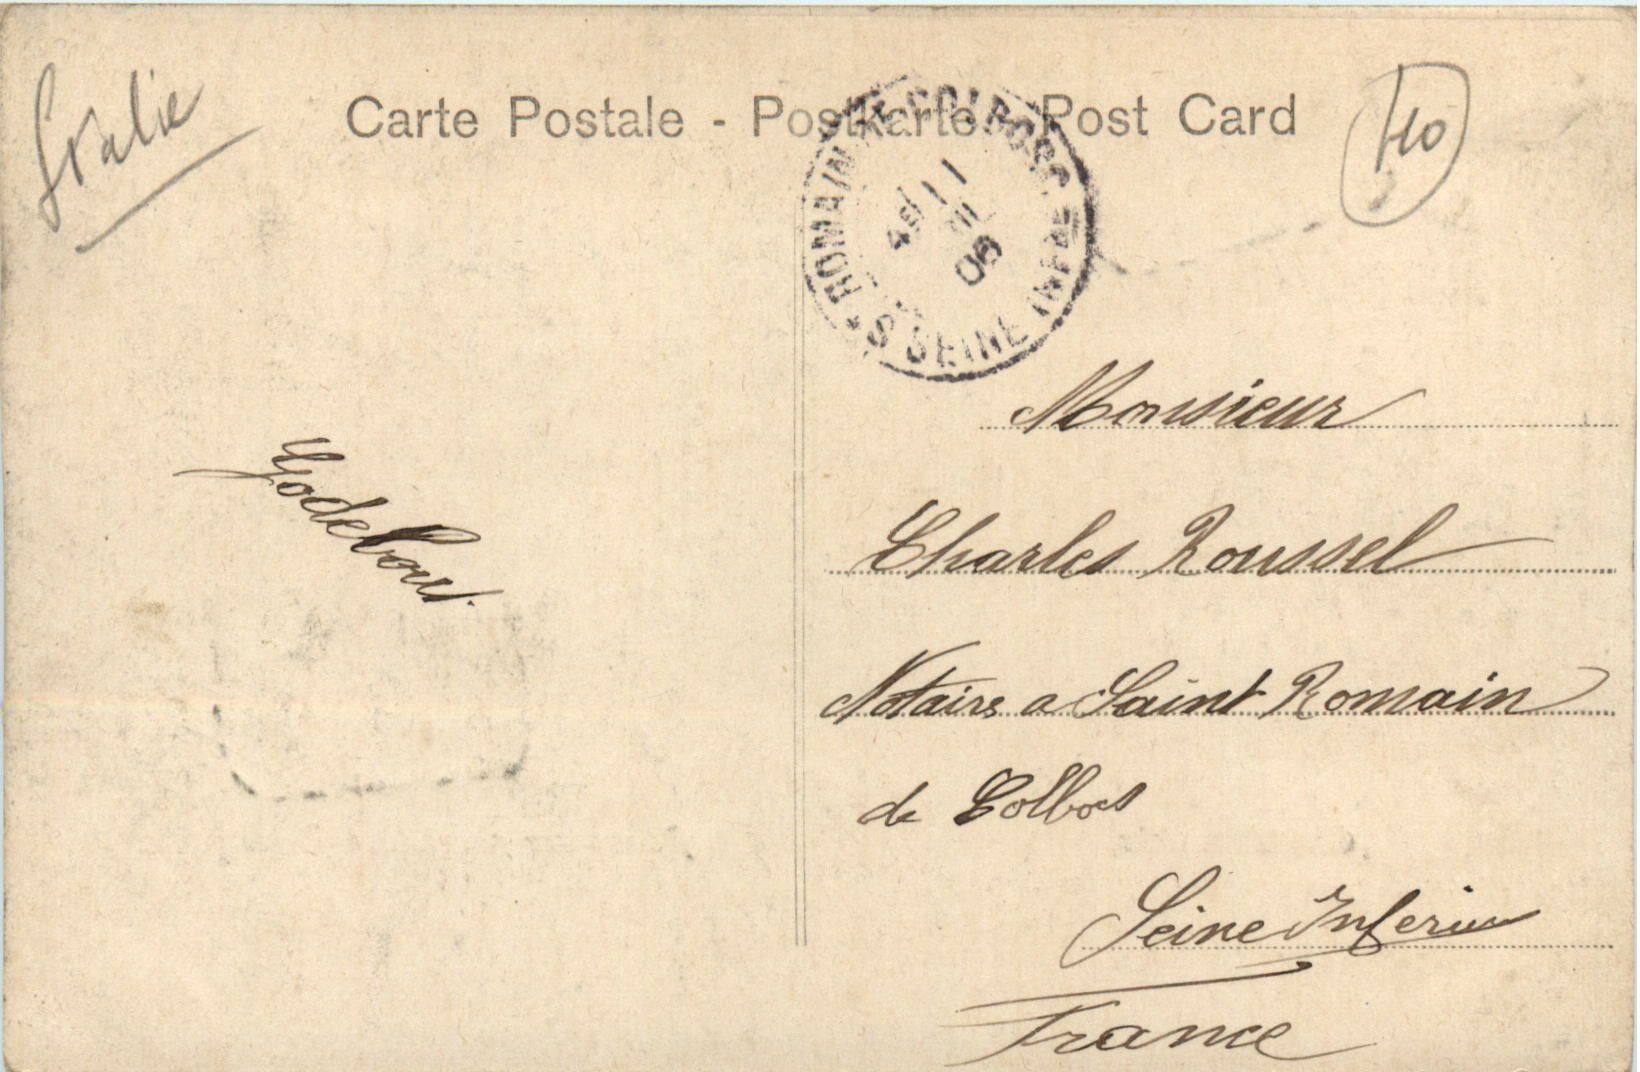 Italie
Carte Postale - Postkarte - Post Card
40
ROMAIN DE COLBOSC
SEINE INFRE
4 11
06
Monsieur
Charles Roussel
Notaire a Saint Romain
de Colbocs
Seine Inferieu
France
Godebout